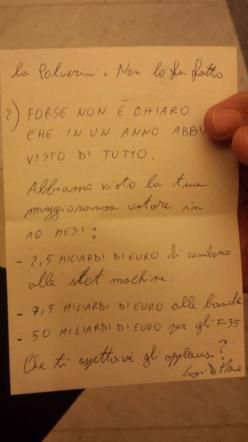 la Polverini. Non lo ha fatto
2) FORSE NON È CHIARO
CHE IN UN ANNO ABBI
VISTO DI TUTTO.
Abbiamo visto la tua
maggioranza votare in
10 MESI:
- 2,5 MILIARDI D'EURO di condono
alle slot machine.
- 7,5 MILIARDI D'EURO alle banche
- 50 MILIARDI D'EURO per gli F-35
Che ti aspettavi gli applausi?
Luigi Di Maio